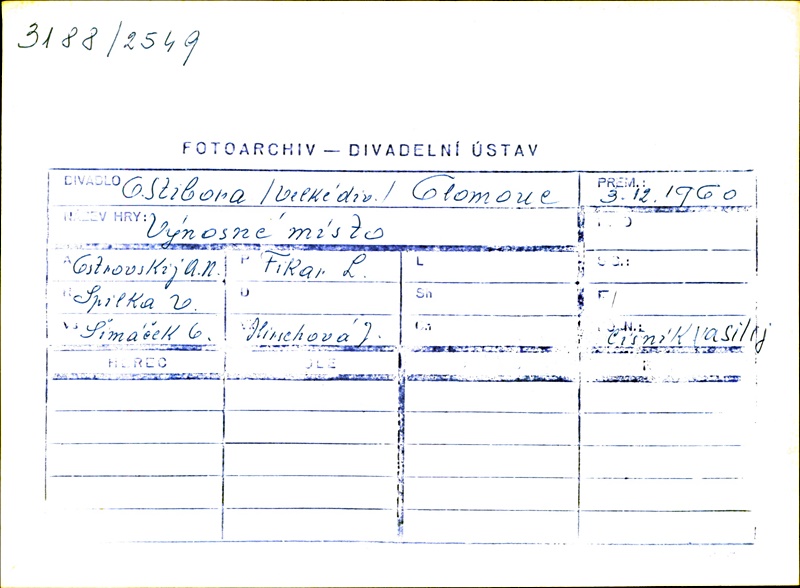 3188/2549
FOTOARCHIV — DIVADELNÍ ÚSTAV
DIVADLO O. Stibora /Velké div./ Olomouc PREM.: 3.12.1960
NÁZEV HRY: Výnosné místo
A Ostrovskij A.N. P Fikar L. L
R Spilka V. D Sn
Vs Šimáček O. Hirschová J. Čisník Vasilij
HEREC